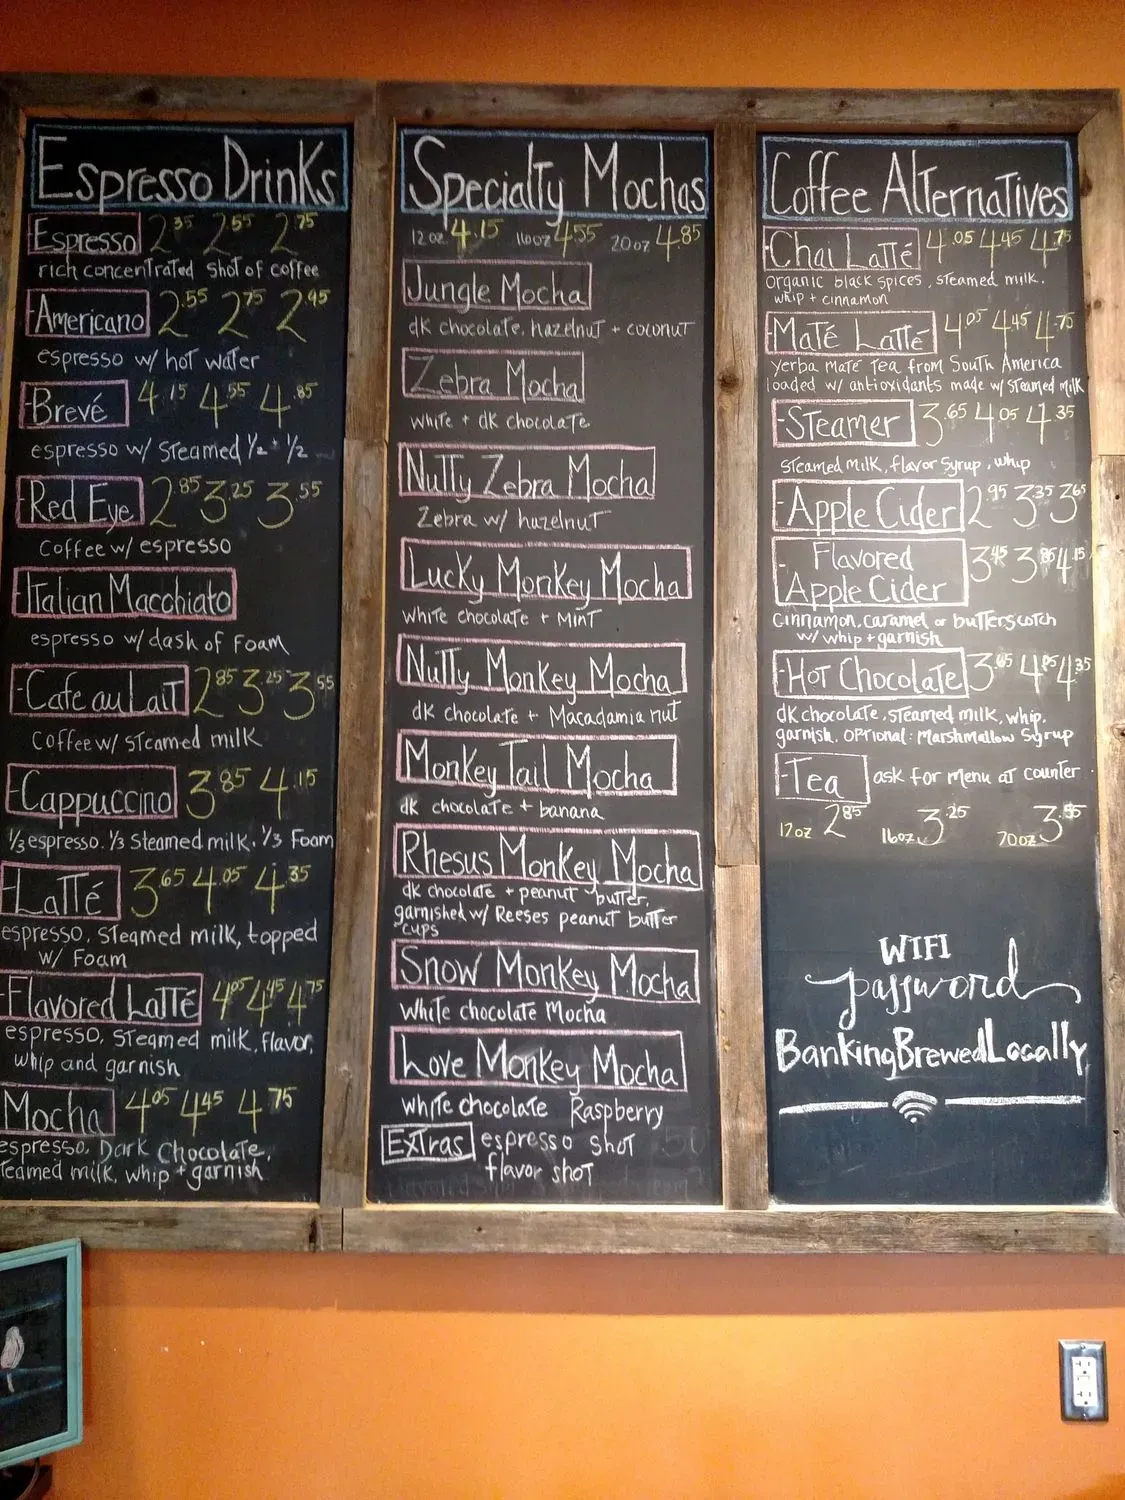 Espresso Drinks
Espresso 2.35 2.55 2.75
rich concentrated shot of coffee
Americano 2.55 2.75 2.95
espresso w/ hot water
Brevé 4.15 4.55 4.85
espresso w/ steamed 1/2 + 1/2
Red Eye 2.85 3.25 3.55
Coffee w/ espresso
-Italian Macchiato
espresso w/ dash of Foam
-Cafe au Lait 2.85 3.25 3.55
Coffee w/ steamed milk
-Cappuccino 3.85 4.15
1/3 espresso. 1/3 Steamed milk. 1/3 Foam
-Latté 3.65 4.05 4.35
espresso, steamed milk, topped
w/ Foam
-Flavored Latté 4.05 4.45 4.75
espresso, steamed milk, flavor,
whip and garnish
Mocha 4.05 4.45 4.75
espresso, Dark Chocolate,
teamed milk, whip + garnish
Specialty Mochas
12oz 4.15 16oz 4.55 20oz 4.85
Jungle Mocha
dk chocolate, hazelnut + coconut
Zebra Mocha
white + dk chocolate
Nutty Zebra Mocha
Zebra w/ hazelnut
Lucky Monkey Mocha
white chocolate + Mint
Nutty Monkey Mocha
dk chocolate + Macadamia nut
Monkey Tail Mocha
dk chocolate + banana
Rhesus Monkey Mocha
dk chocolate + peanut butter,
garnished w/ Reeses peanut butter
cups
Snow Monkey Mocha
White chocolate Mocha
Love Monkey Mocha
white chocolate Raspberry
Extras espresso shot
flavor shot
Coffee Alternatives
-Chai Latté 4.05 4.45 4.75
Organic black spices, steamed milk.
whip + cinnamon
-Maté Latté 4.05 4.45 4.75
Yerba maté tea from South America
loaded w/ antioxidants made w/ steamed milk
-Steamer 3.65 4.05 4.35
steamed milk, flavor syrup, whip
-Apple Cider 2.95 3.35 3.65
Flavored
- Apple Cider 3.45 3.85 4.15
Cinnamon, caramel or butterscotch
w/ whip + garnish
-Hot Chocolate 3.65 4.05 4.35
dk chocolate, steamed milk, whip,
garnish. Optional: Marshmallow Syrup
-Tea ask for menu at counter
12oz 2.85 16oz 3.25 20oz 3.55
WIFI
password
BankingBrewedLocally